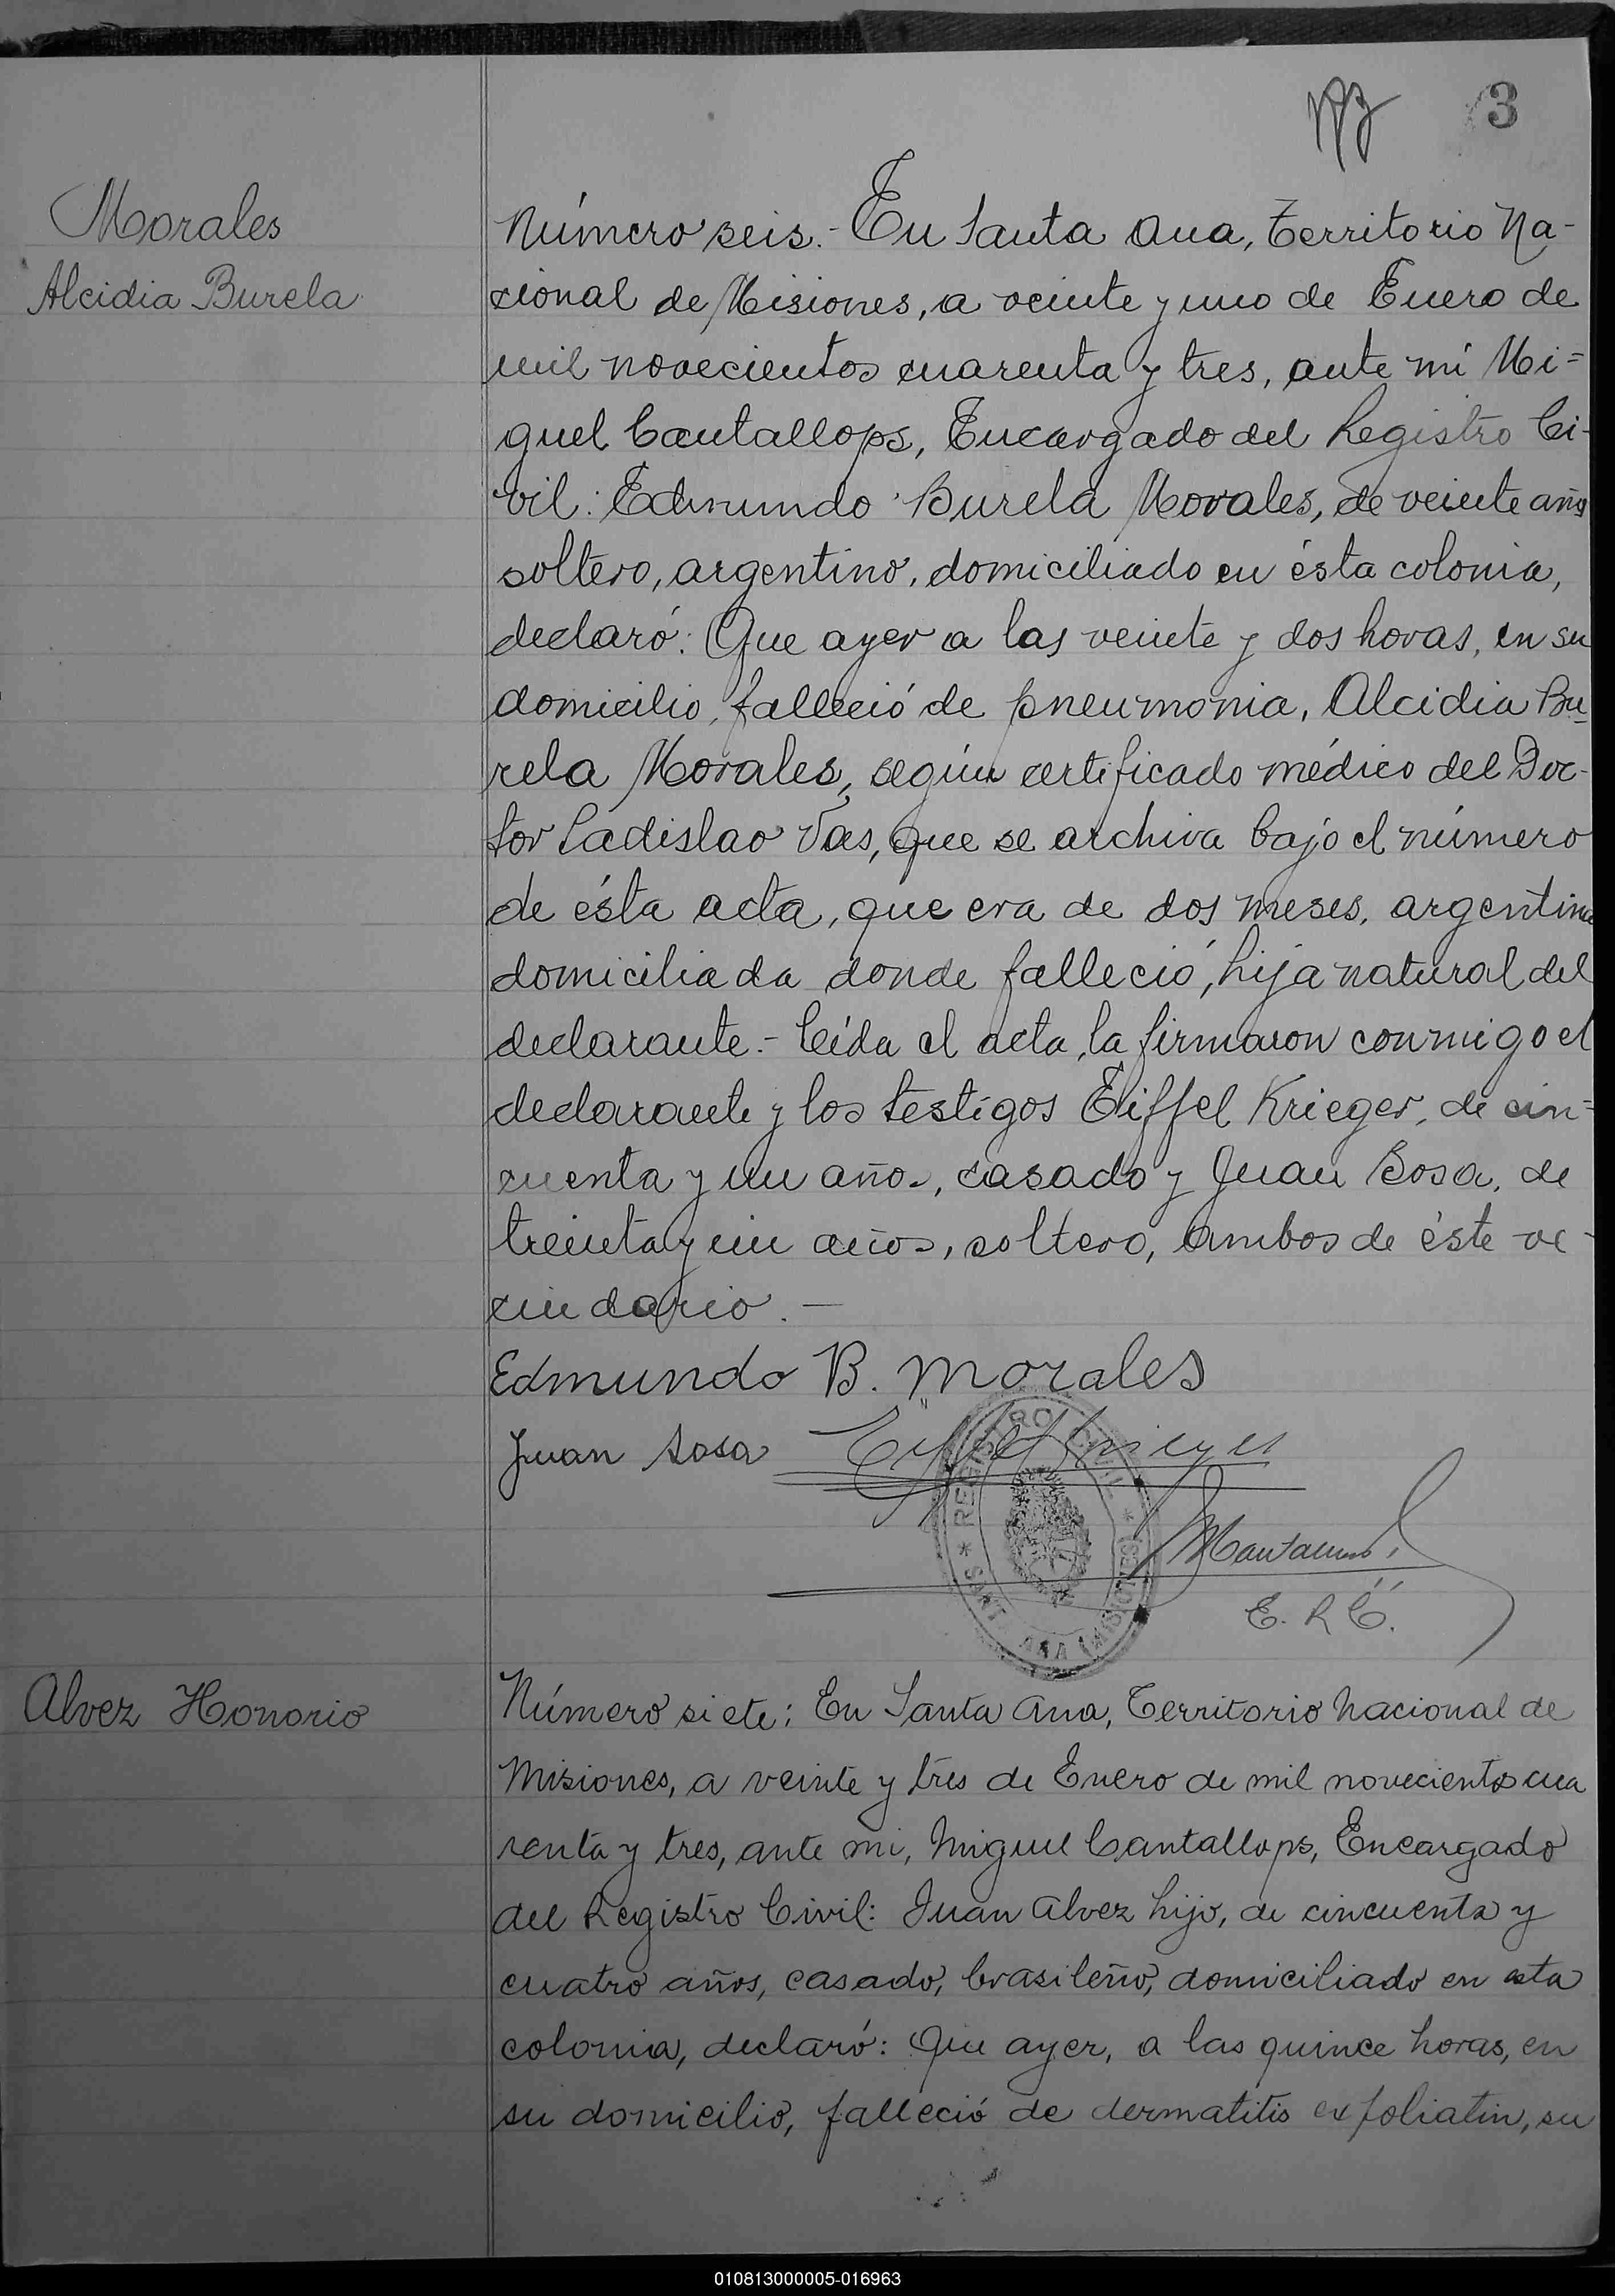 3
Morales
Alcidia Burela
Número seis.- En Santa Ana, Territorio Na-
cional de Misiones, a veinte y uno de Enero de
mil novecientos cuarenta y tres, ante mí Mi=
guel Cantallops, Encargado del Registro Ci-
vil: Edmundo Burela Morales, de veinte años
soltero, argentino, domiciliado en ésta colonia,
declaró: Que ayer a las veinte y dos horas, en su
domicilio, falleció de pneumonia, Alcidia Bu-
rela Morales, según certificado médico del Doc-
tor Ladislao Vas, que se archiva bajo el número
de ésta acta, que era de dos meses, argentina
domiciliada donde falleció, hija natural del
declarante.- Leída el acta, la firmaron conmigo el
declarante y los testigos Eiffel Krieger, de cin=
cuenta y un años, casado y Juan Sosa, de
treinta y un años, soltero, ambos de éste ve-
cindario.-
Edmundo B. Morales
Juan Sosa Eiffel Krieger
REGISTRO CIVIL
* SANTA ANA (MISIONES) *
E. R. C.
Alvez Honorio
Número siete: En Santa Ana, Territorio Nacional de
Misiones, a veinte y tres de Enero de mil novecientos cua
renta y tres, ante mi, Miguel Cantallops, Encargado
del Registro Civil: Juan Alvez hijo, de cincuenta y
cuatro años, casado, brasileño, domiciliado en esta
colonia, declaró: Que ayer, a las quince horas, en
su domicilio, falleció de dermatitis exfoliatin, su
010813000005-016963